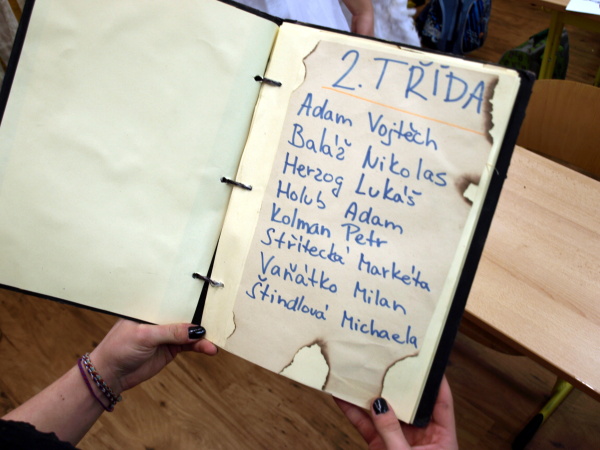 2. TŘÍDA
Adam Vojtěch
Baláž Nikolas
Herzog Lukáš
Holub Adam
Kolman Petr
Střítecká Markéta
Vaňátko Milan
Štindlová Michaela